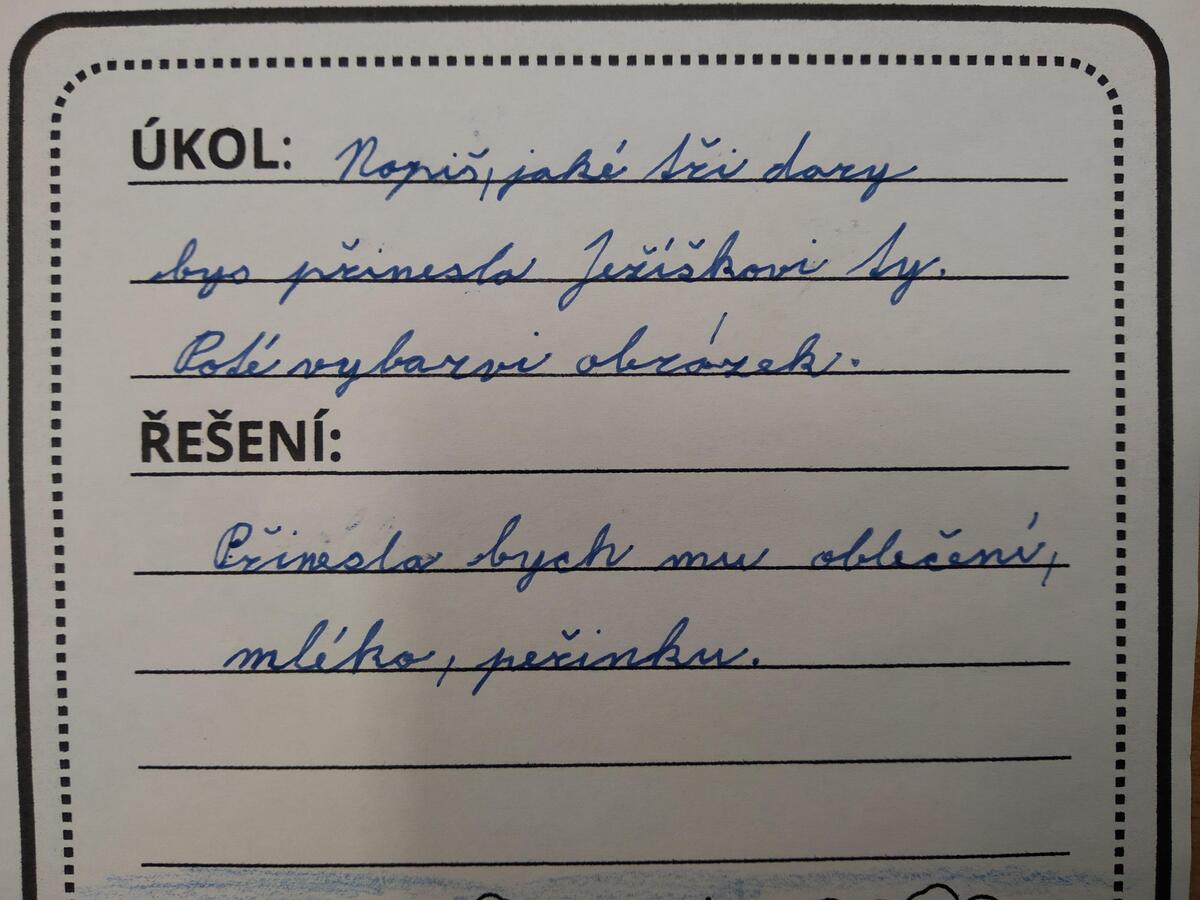 ÚKOL: Napiš, jaké tři dary
bys přinesla Ježíškovi ty.
Poté vybarvi obrázek.
ŘEŠENÍ:
Přinesla bych mu oblečení,
mléko, peřinku.